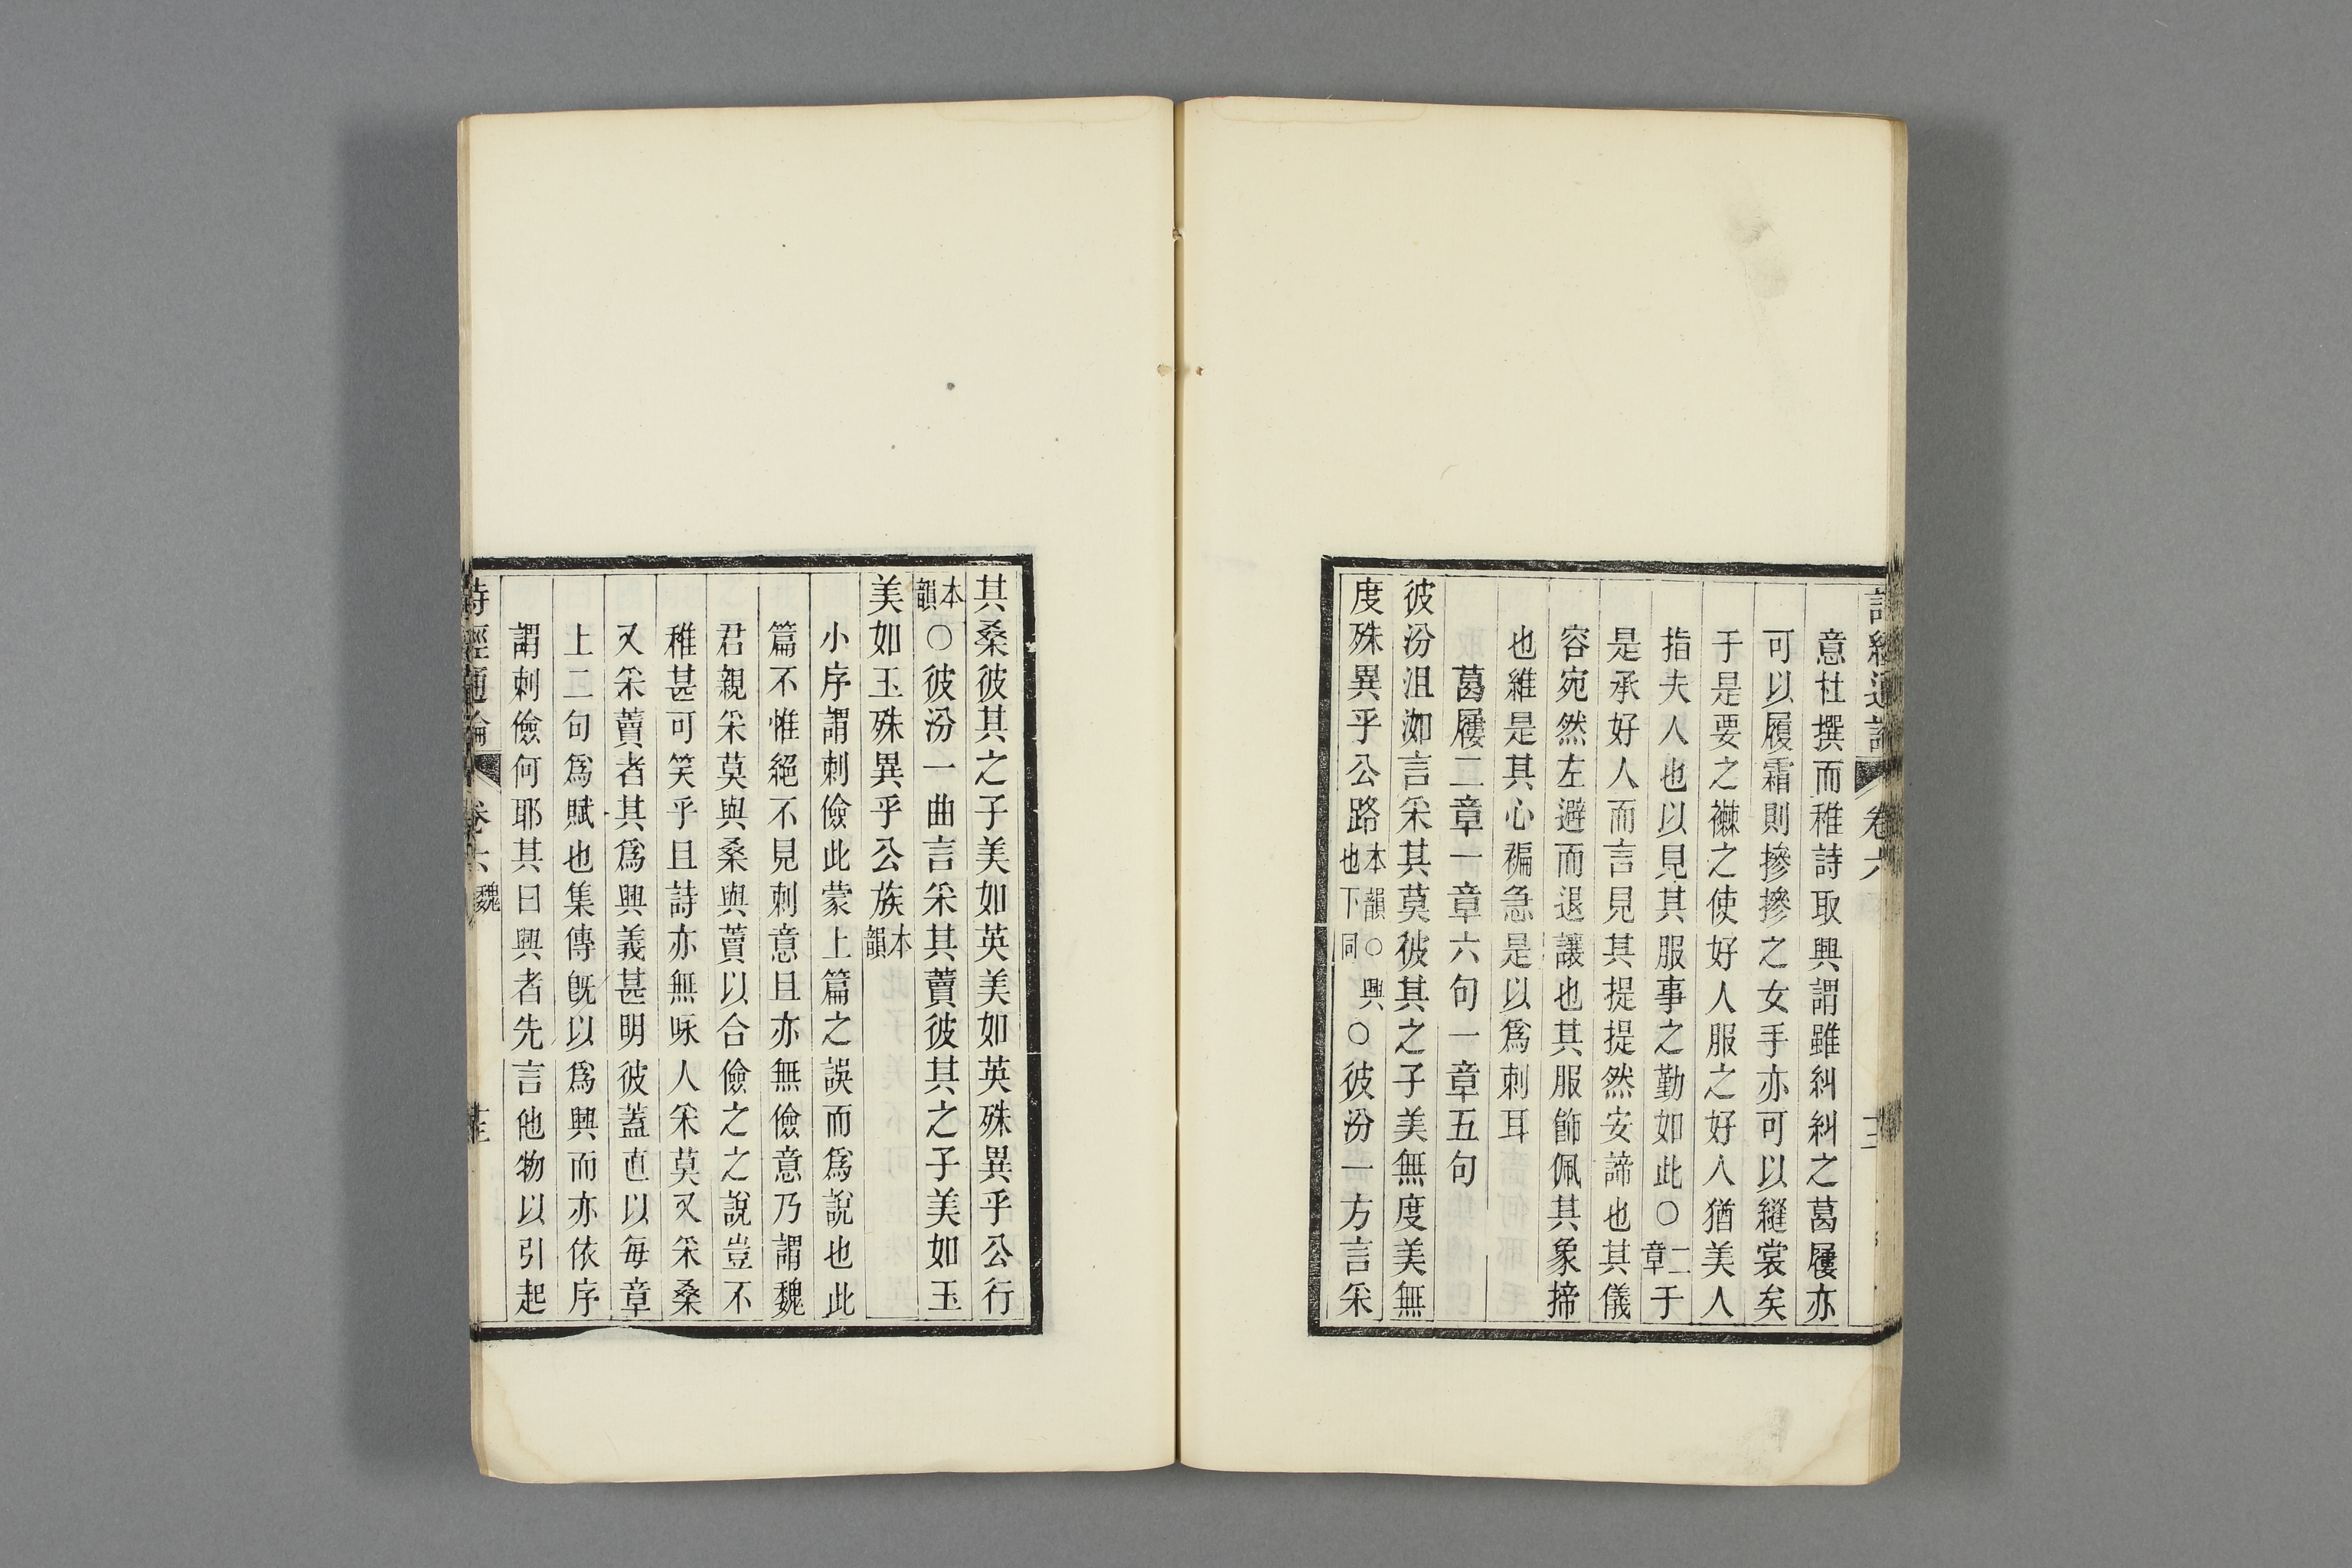 意杜撰而稚詩取興謂雖糾糾之葛屨亦
可以履霜則摻摻之女手亦可以縫裳矣
于是要之襋之使好人服之好人猶美人
指夫人也以見其服事之勤如此○二章于
是承好人而言見其提提然安諦也其儀
容宛然左避而退讓也其服飾佩其象揥
也維是其心褊急是以爲刺耳
葛屨二章一章六句一章五句
彼汾沮洳言采其莫彼其之子美無度美無
度殊異乎公路本韻○興也下同○彼汾一方言采
其桑彼其之子美如英美如英殊異乎公行
本韻○彼汾一曲言采其藚彼其之子美如玉
美如玉殊異乎公族本韻
小序謂刺儉此蒙上篇之誤而爲說也此
篇不惟絕不見刺意且亦無儉意乃謂魏
君親采莫與桑與藚以合儉之之說豈不
稚甚可笑乎且詩亦無咏人采莫又采桑
又采藚者其爲興義甚明彼蓋直以每章
上二句爲賦也集傳旣以爲興而亦依序
謂刺儉何耶其曰興者先言他物以引起
詩經通論 卷六 魏